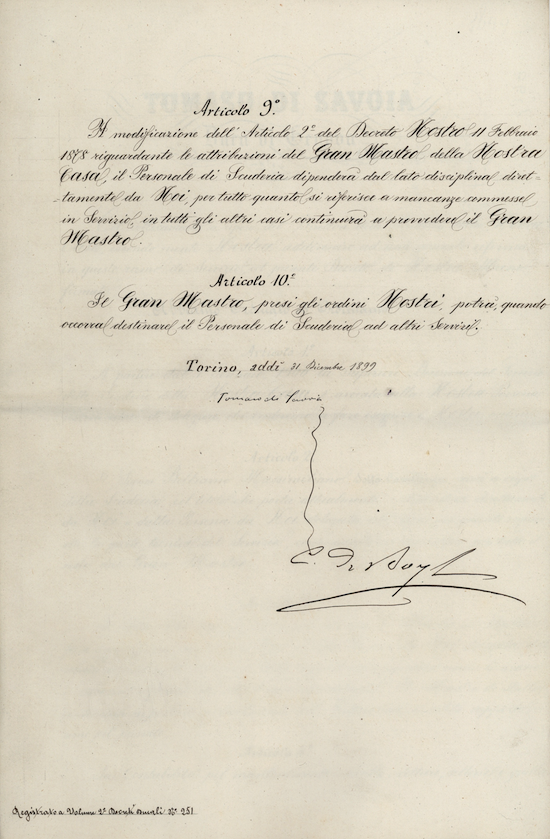 Articolo 9º.
A modificazione dell' Articolo 2º del Decreto Nostro 11 Febbraio
1878 riguardante le attribuzioni del Gran Mastro della Nostra
Casa, il Personale di Scuderia dipenderà dal lato disciplina diret-
-tamente da Noi, per tutto quanto si riferisce a mancanze commesse
in Servizio, in tutti gli altri casi continuerà a provvedere il Gran
Mastro.
Articolo 10º
Il Gran Mastro, presi gli ordini Nostri, potrà, quando
occorra destinare il Personale di Scuderia ad altri Servizii.
Torino, addì 31 Dicembre 1899
Tomaso di Savoia
C.
Registrato a Volume 2º Decreti Ducali Nº 251
TOMASO DI SAVOIA